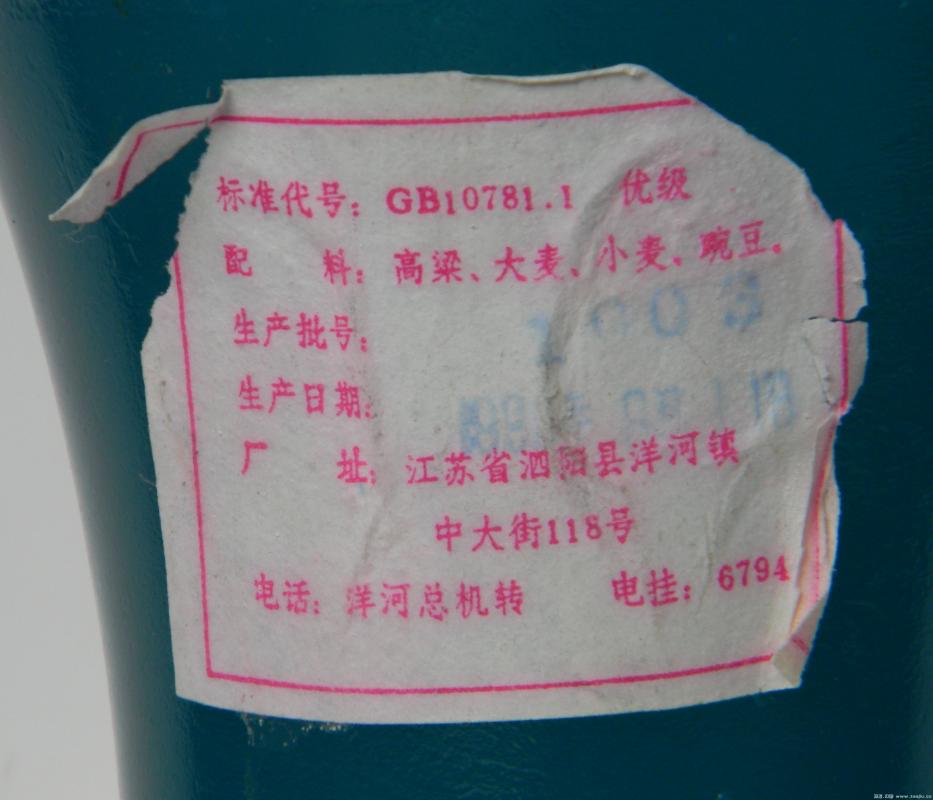 标准代号：GB10781.1 优级
配 料：高粱、大麦、小麦、豌豆。
生产批号： 1003
生产日期：
厂 址：江苏省泗阳县洋河镇
中大街118号
电话：洋河总机转 电挂：6794